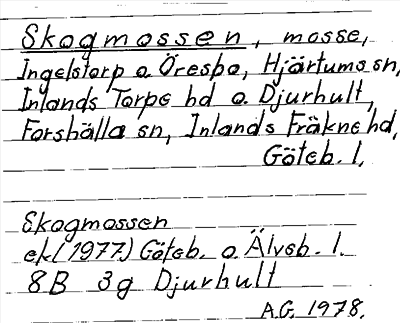 Skogmossen, mosse,
Ingelstorp o. Öresbo, Hjärtums sn,
Inlands Torpe hd o. Djurhult,
Forshälla sn, Inlands Fräkne hd,
Göteb. l.
Skogmossen
ek (1977) Göteb. o. Älvsb. l.
8B 3g Djurhult
A.G. 1978.